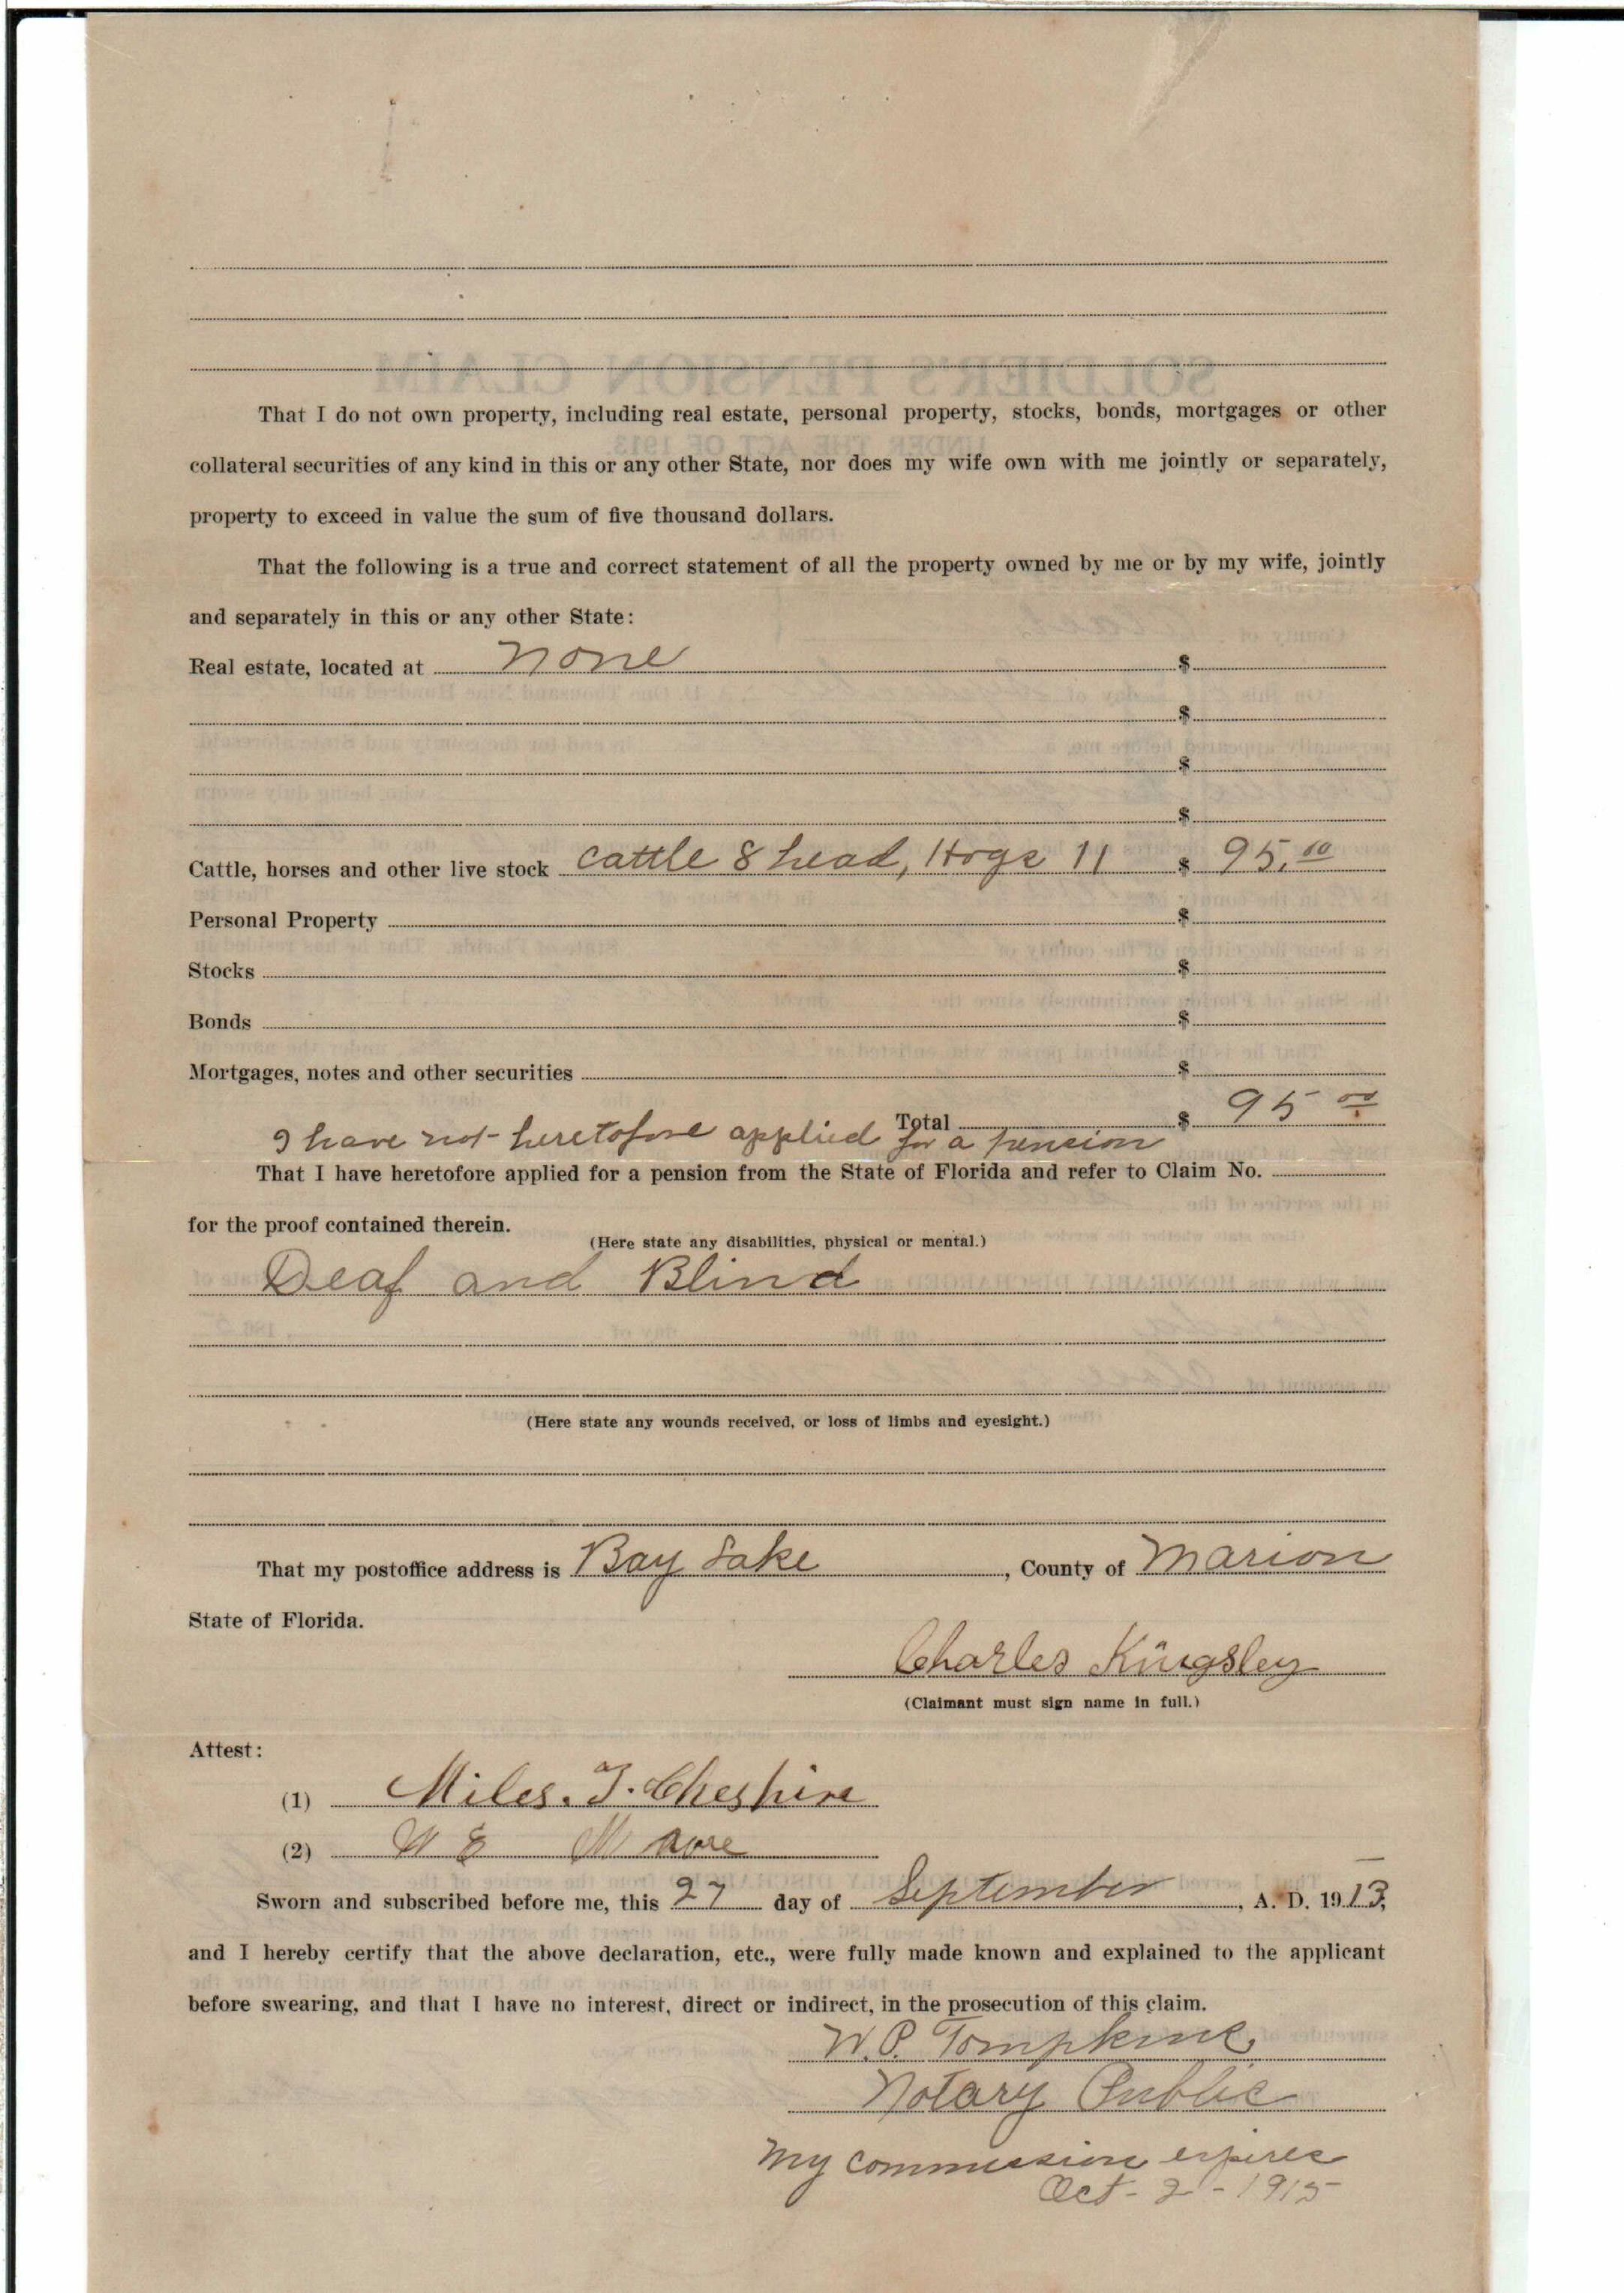 That I do not own property, including real estate, personal property, stocks, bonds, mortgages or other
collateral securities of any kind in this or any other State, nor does my wife own with me jointly or separately,
property to exceed in value the sum of five thousand dollars.
That the following is a true and correct statement of all the property owned by me or by my wife, jointly
and separately in this or any other State:
Real estate, located at none $
$
$
$
Cattle, horses and other live stock cattle 8 head, Hogs 11 $ 95.00
Personal Property $
Stocks $
Bonds $
Mortgages, notes and other securities $
Total $ 95 00
I have not heretofore applied for a pension
That I have heretofore applied for a pension from the State of Florida and refer to Claim No.
for the proof contained therein.
(Here state any disabilities, physical or mental.)
Deaf and Blind
(Here state any wounds received, or loss of limbs and eyesight.)
That my postoffice address is Bay Lake, County of Marion
State of Florida.
Charles Kingsley
(Claimant must sign name in full.)
Attest:
(1) Miles. T. Cheshire
(2) W E
Sworn and subscribed before me, this 27 day of September, A. D. 1913,
and I hereby certify that the above declaration, etc., were fully made known and explained to the applicant
before swearing, and that I have no interest, direct or indirect, in the prosecution of this claim.
W.P. Tompkins
Notary Public
My commission expires
Oct - 2 - 1915